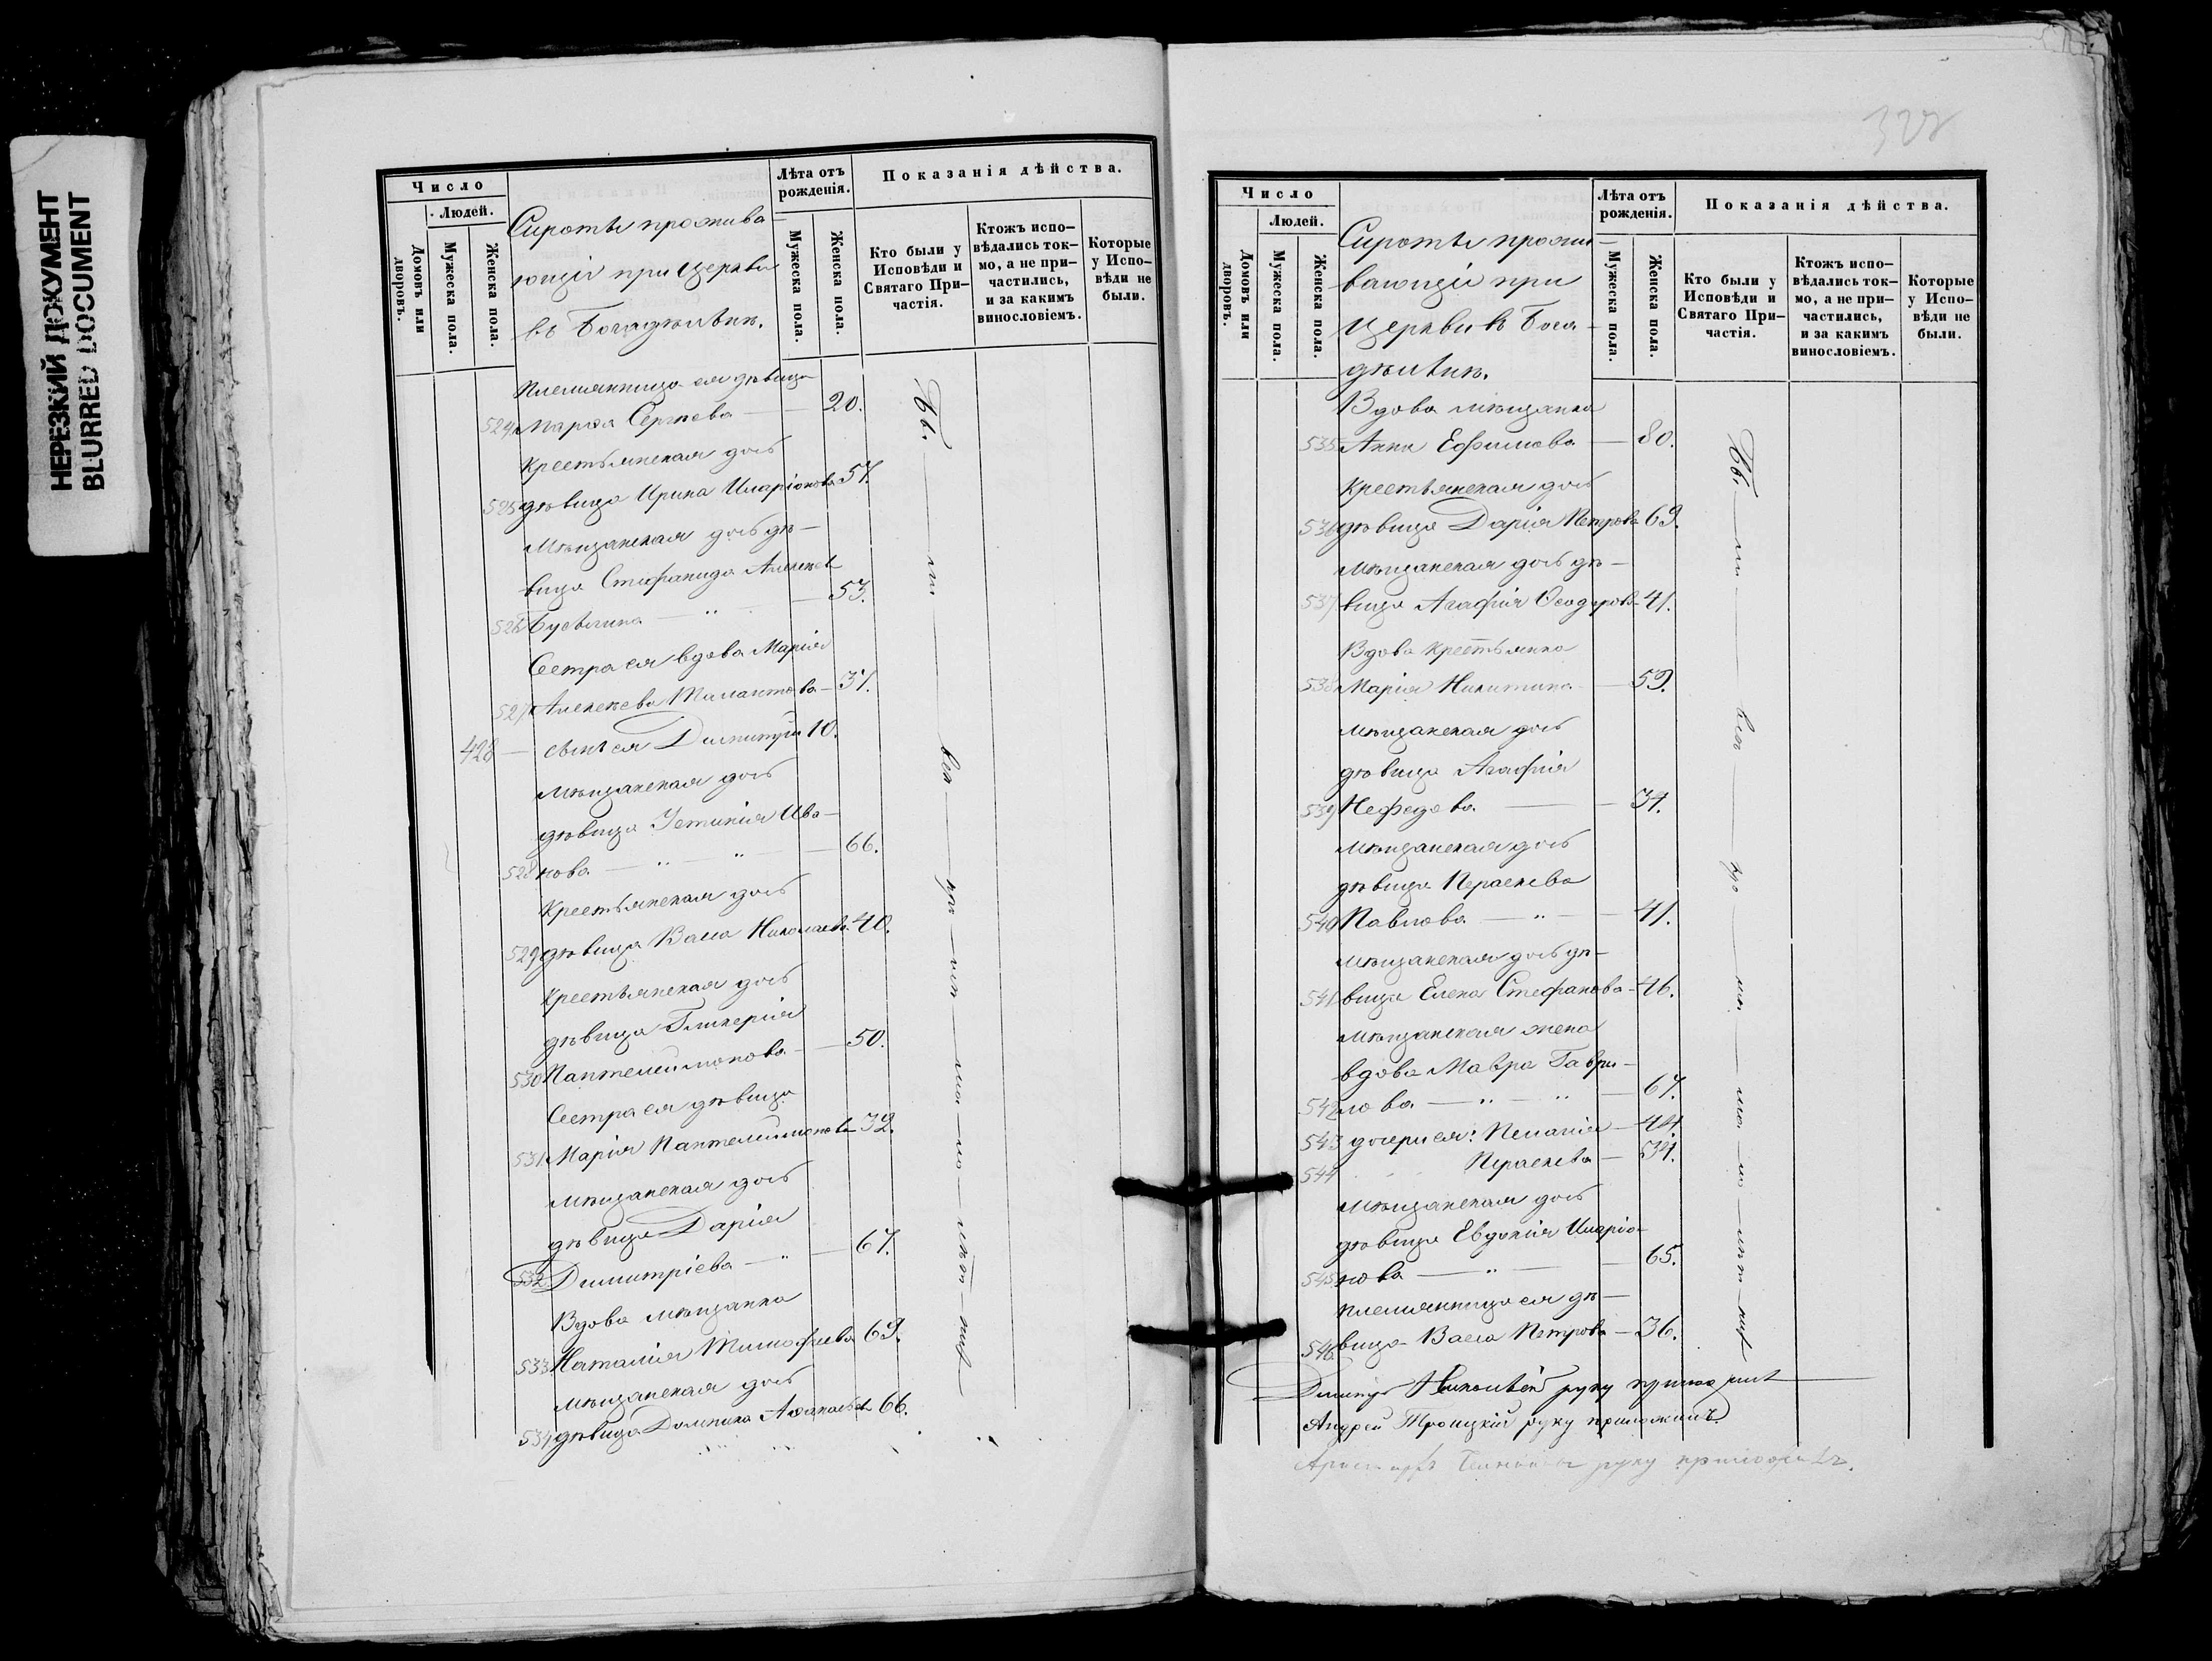 НЕРЕЗКИЙ ДОКУМЕНТ
BLURRED DOCUMENT
Число
Людей.
Домовъ или дворовъ.
Мужеска пола.
Женска пола.
Сироты прожива-
ющіе при Церкви
въ Богадѣльнѣ.
Лѣта отъ рожденія.
Мужеска пола.
Женска пола.
Показанія дѣйства.
Кто были у Исповѣди и Святаго При-частія.
Ктожъ испо-вѣдались ток-мо, а не при-частились, и за какимъ винословіемъ.
Которые у Испо-вѣди не были.
Племянница ея дѣвица
524 Марѳа Сергѣева — 20.
Крестьянская дочь
525 дѣвица Ирина Иларіонова 57.
Мѣщанская дочь дѣ-
вица Стефанида Алексѣе
526 — " — 53.
Сестра ея вдова Марія
527 Алексѣева — 37.
428 — сынъ ея Димитрій 10.
Мѣщанская дочь
дѣвица Устинія Ива-
528 нова — " — " — 66.
Крестьянская дочь
529 дѣвица Васса Николаева 40.
Крестьянская дочь
дѣвица Гликерія
530 Пантелеимонова — 50.
Сестра ея дѣвица
531 Марія Пантелеимонова 32.
Мѣщанская дочь
дѣвица Дарія
532 Димитріева — " — 67.
Вдова мѣщанка
533 Наталія Тимофеева 69.
Мѣщанская дочь
534 дѣвица Домника Аѳанасьева 66.
328
Число
Людей.
Домовъ или дворовъ.
Мужеска пола.
Женска пола.
Сироты прожи-
вающіе при
Церкви въ Бога-
дѣльнѣ.
Лѣта отъ рожденія.
Мужеска пола.
Женска пола.
Показанія дѣйства.
Кто были у Исповѣди и Святаго При-частія.
Ктожъ испо-вѣдались ток-мо, а не при-частились, и за какимъ винословіемъ.
Которые у Испо-вѣди не были.
Вдова мѣщанка
535 Анна Ефимова — 80.
Крестьянская дочь
536 дѣвица Дарія Петрова 69.
Мѣщанская дочь дѣ-
537 вица Агафія Ѳеодорова 41.
Вдова крестьянка
538 Марія Никитина — 59.
Мѣщанская дочь
дѣвица Агафія
539 Нефедова — 34.
Мѣщанская дочь
дѣвица Параскева
540 Павлова — " — 41.
Мѣщанская дочь дѣ-
541 вица Елена Стефанова — 46.
Мѣщанская жена
вдова Мавра Гаври-
542 лова — " — " — 67.
543 дочери ея: Пелагія — 44
544 Параскева — 34.
Мѣщанская дочь
дѣвица Евдокія Иларіо-
545 нова — " — 65.
Племянница ея дѣ-
546 вица Васса Петрова — 36.
Димитрій руку приложилъ
Андрей Троицкій руку приложилъ
руку приложилъ.